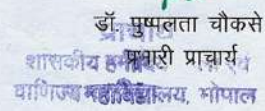 डॉ. पुष्पलता चौकसे
प्रभारी प्राचार्य
प्राचार्य
शासकीय हमीदिया
वाणिज्य महाविद्यालय, भोपाल